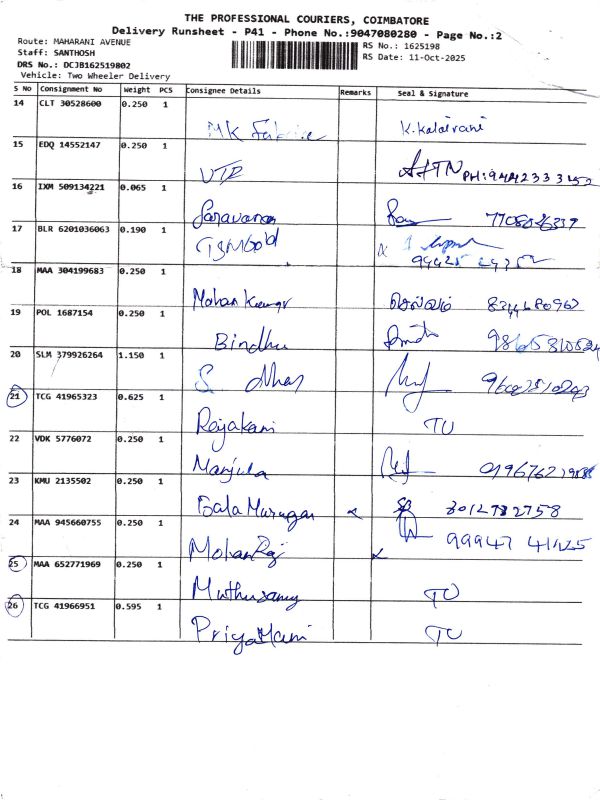 THE PROFESSIONAL COURIERS, COIMBATORE
Delivery Runsheet - P41 - Phone No.:9047080280 - Page No.:2
Route: MAHARANI AVENUE
RS No.: 1625198
Staff: SANTHOSH
RS Date: 11-Oct-2025
DRS No.: DCJB162519802
Vehicle: Two Wheeler Delivery
S No Consignment No Weight PCS Consignee Details Remarks Seal & Signature
14 CLT 30528600 0.250 1
MK K.Kalaivani
15 EDQ 14552147 0.250 1
VTP
16 IXM 509134221 0.065 1
Saravanan
17 BLR 6201036063 0.190 1
18 MAA 304199683 0.250 1
Mohan Kumar
19 POL 1687154 0.250 1
Bindhu
20 SLM 379926264 1.150 1
S
21 TCG 41965323 0.625 1
Rajakani TU
22 VDK 5776072 0.250 1
Manjula
23 KMU 2135502 0.250 1
Bala Murugan
24 MAA 945660755 0.250 1
Mohan Raj 99947
25 MAA 652771969 0.250 1
Muthusamy TU
26 TCG 41966951 0.595 1
PriyaMani TU